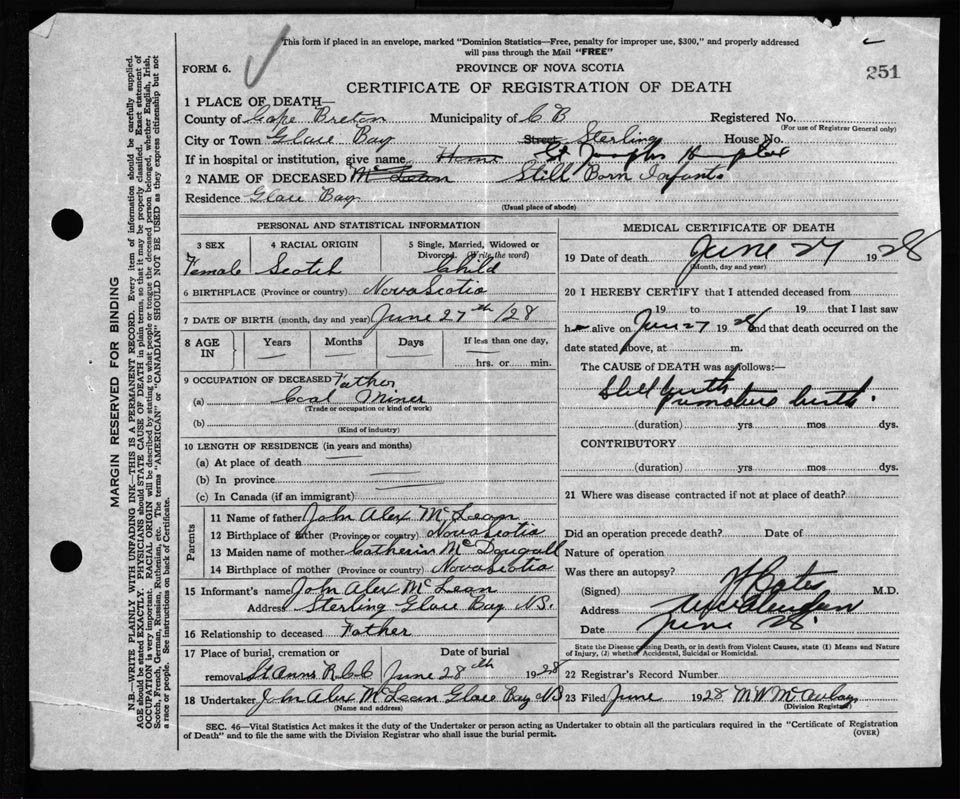 This form if placed in an envelope, marked "Dominion Statistics—Free, penalty for improper use, $300," and properly addressed
will pass through the Mail "FREE"
FORM 6.
PROVINCE OF NOVA SCOTIA
251
CERTIFICATE OF REGISTRATION OF DEATH
1 PLACE OF DEATH—
County of Cape Breton Municipality of C B Registered No.
(For use of Registrar General only)
City or Town Glace Bay Street Sterling House No.
If in hospital or institution, give name Home St Josephs Hospital
2 NAME OF DECEASED McLean Still Born Infant
Residence Glace Bay
(Usual place of abode)
PERSONAL AND STATISTICAL INFORMATION
3 SEX 4 RACIAL ORIGIN 5 Single, Married, Widowed or
Divorced. (Write the word)
Female Scotch Child
6 BIRTHPLACE (Province or country) Nova Scotia
7 DATE OF BIRTH (month, day and year) June 27th/28
8 AGE IN Years Months Days If less than one day,
hrs. or min.
9 OCCUPATION OF DECEASED Father
(a) Coal Miner
(Trade or occupation or kind of work)
(b)
(Kind of industry)
10 LENGTH OF RESIDENCE (in years and months)
(a) At place of death
(b) In province
(c) In Canada (if an immigrant)
Parents
11 Name of father John Alex McLean
12 Birthplace of father (Province or country) Nova Scotia
13 Maiden name of mother Catherine McDougall
14 Birthplace of mother (Province or country) Nova Scotia
15 Informant's name John Alex McLean
Address Sterling Glace Bay NS.
16 Relationship to deceased Father
17 Place of burial, cremation or Date of burial
removal St Anns R C C June 28th 1928
18 Undertaker John Alex McLean Glace Bay NS
(Name and address)
MEDICAL CERTIFICATE OF DEATH
19 Date of death June 27 1928
(Month, day and year)
20 I HEREBY CERTIFY that I attended deceased from
19 to 19 that I last saw
h alive on June 27 1928 and that death occurred on the
date stated above, at m.
The CAUSE of DEATH was as follows:—
Still birth
premature birth.
(duration) yrs mos dys.
CONTRIBUTORY
(duration) yrs mos dys.
21 Where was disease contracted if not at place of death?
Did an operation precede death? Date of
Nature of operation
Was there an autopsy?
(Signed) M.D.
Address
Date June 28.
State the Disease causing Death, or in death from Violent Causes, state (1) Means and Nature
of Injury, (2) whether Accidental, Suicidal or Homicidal.
22 Registrar's Record Number
23 Filed June 1928 M W McAulay
(Division Registrar)
SEC. 46—Vital Statistics Act makes it the duty of the Undertaker or person acting as Undertaker to obtain all the particulars required in the "Certificate of Registration
of Death" and to file the same with the Division Registrar who shall issue the burial permit.
(OVER)
MARGIN RESERVED FOR BINDING
N.B.—WRITE PLAINLY WITH UNFADING INK—THIS IS A PERMANENT RECORD. Every item of information should be carefully supplied.
AGE should be stated EXACTLY. PHYSICIANS should STATE CAUSE OF DEATH in plain terms, so that it may be properly classified. Exact statement of
OCCUPATION is very important. RACIAL ORIGIN will be described by stating to what people or tongue the deceased person belonged, whether English, Irish,
Scotch, French, German, Russian, Ruthenian, etc. The terms "AMERICAN" or "CANADIAN" SHOULD NOT BE USED as they express citizenship but not
a race or people. See instructions on back of Certificate.